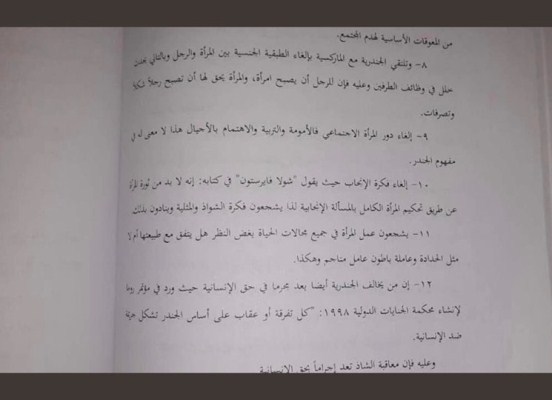 من المعوقات الأساسية لهدم المجتمع.
٨- وتلتقي الجندرية مع الماركسية بإلغاء الطبقية الجنسية بين المرأة والرجل وبالتالي يحدث
خلل في وظائف الطرفين وعليه فإن للرجل أن يصبح امرأة، والمرأة يحق لها أن تصبح رجلاً شكلاً
وتصرفات.
٩- إلغاء دور المرأة الاجتماعي فالأمومة والتربية والاهتمام بالأجيال هذا لا معنى له في
مفهوم الجندر.
١٠- إلغاء فكرة الإنجاب حيث يقول "شولا فايرستون" في كتابه: إنه لا بد من ثورة المرأة
عن طريق تحكيم المرأة الكامل بالمسألة الإنجابية لذا يشجعون فكرة الشواذ والمثلية وينادون بذلك
١١- يشجعون عمل المرأة في جميع مجالات الحياة بغض النظر هل يتفق مع طبيعتها أم لا
مثل الحدادة وعاملة باطون عامل مناجم وهكذا.
١٢- إن من يخالف الجندرية أيضا يعد مجرما في حق الإنسانية حيث ورد في مؤتمر روما
لإنشاء محكمة الجنايات الدولية ١٩٩٨: "كل تفرقة أو عقاب على أساس الجندر تشكل جريمة
ضد الإنسانية.
وعليه فإن معاقبة الشاذ تعد إجراماً بحق الإنسانية